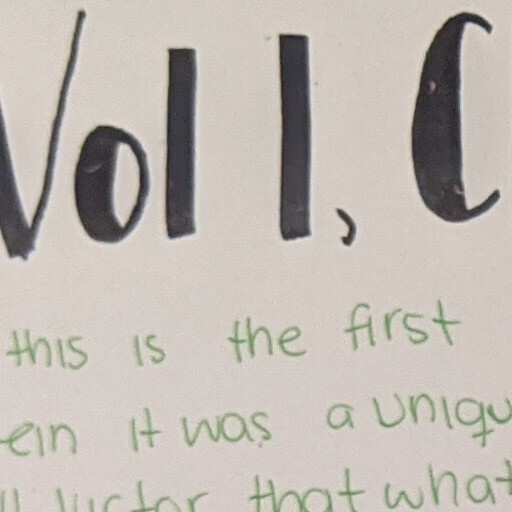 Vol 1, C
this is the first
ein it was a uniqu
that what